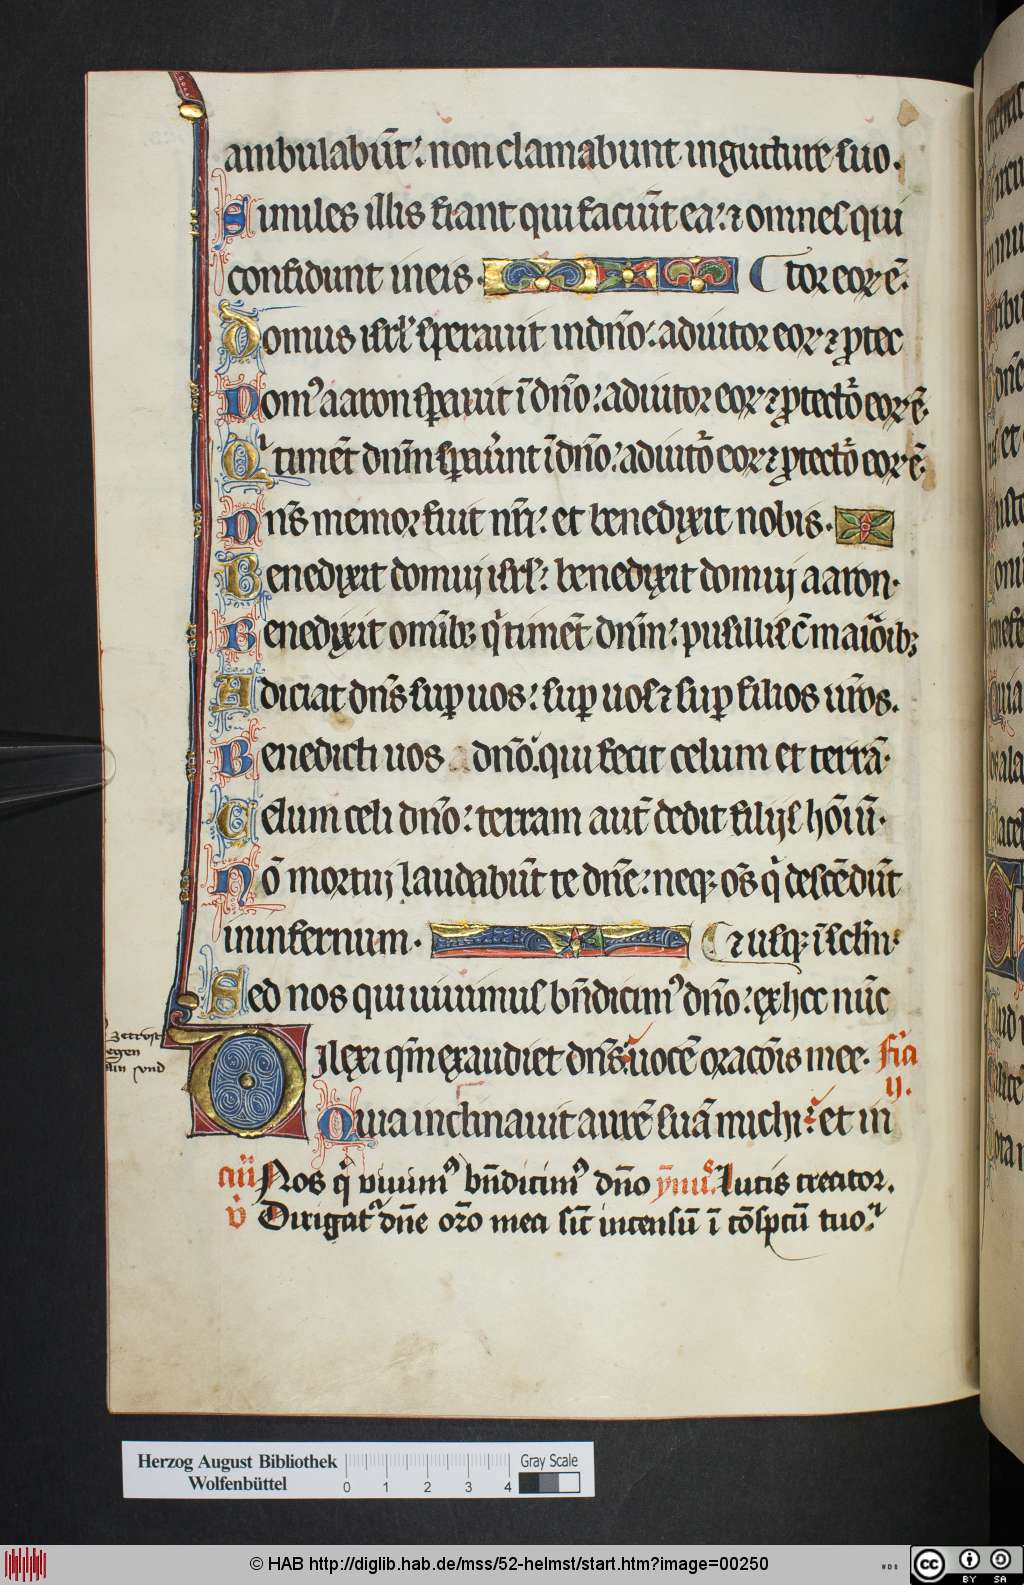 ambulabūt: non clamabunt in gutture suo.
Similes illis fiant qui faciūt ea: ⁊ omnes qui
confidunt in eis. tor eoꝝ ē.
Domus isrl' sperauit in dn̄o: adiutor eoꝝ ⁊ ꝓtec
Domꝰ aaron sꝑauit ī dn̄o: adiutor eoꝝ ⁊ ꝓtector eoꝝ ē.
Qi timēt dnm̄ sꝑauert ī dn̄o: adiutor eoꝝ ⁊ ꝓtector eoꝝ ē.
Dn̄s memor fuit nr̄i: et benedixit nobis.
Benedixit domuj isrl': benedixit domuj aaron.
Benedixit omībꝫ qi timēt dnm̄: pusillis c̄ maioribꝫ
Adiciat dn̄s suꝑ uos: suꝑ uos ⁊ suꝑ filios ur̄os.
Benedicti uos a dn̄o: qui fecit celum et terrā.
Celum celi dn̄o: terram aut̄ dedit filijs hōiū.
Nō mortuj laudabūt te dn̄e: neqꝫ om̄s qi descēdūt
in infernum. ⁊ usqꝫ ī sclm̄.
Sed nos qui uiuimus bn̄dicimꝰ dn̄o: ex hoc nūc
Dilexi qm̄ exaudiet dn̄s: uocē orac̄ōis mee. fīa
ij.
Quia inclinauit aurē suā michi: et in
an̄ Nos qi viuimꝰ bn̄dicimꝰ dn̄o ymꝰ. Lucis creator.
v̇ Dirigatr dn̄e or̄o mea sic̄ incensū ī cōspcū tuo.
Herzog August Bibliothek
Wolfenbüttel
0 1 2 3 4
Gray Scale
© HAB http://diglib.hab.de/mss/52-helmst/start.htm?image=00250
WDB
cc BY SA